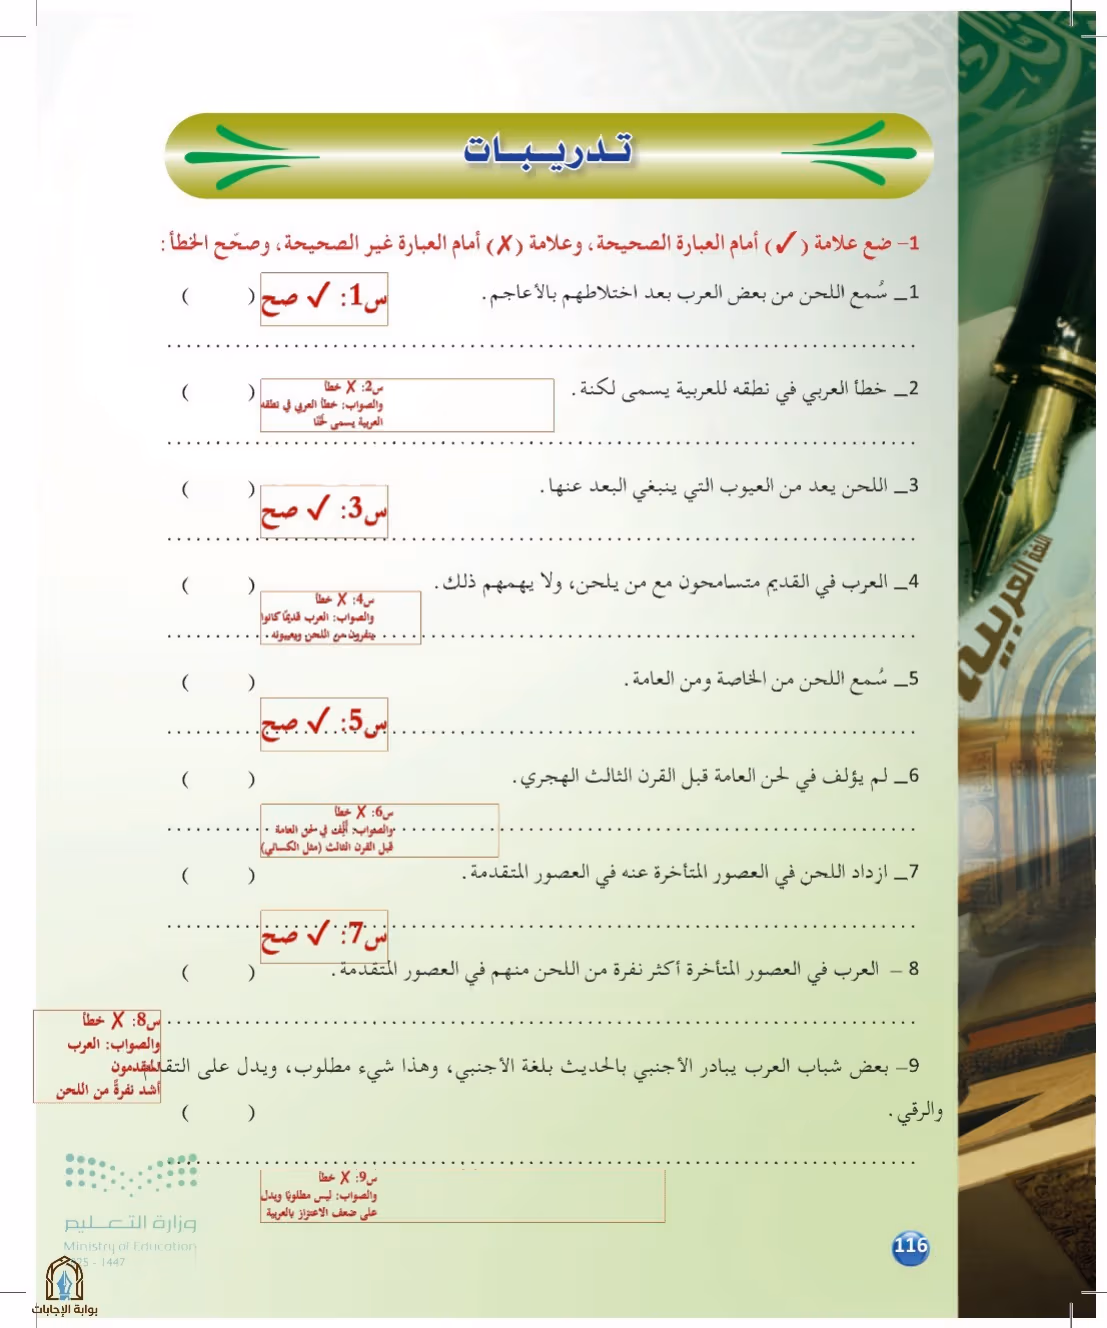 تدريبات
1- ضع علامة (✓) أمام العبارة الصحيحة، وعلامة (✗) أمام العبارة غير الصحيحة، وصحّح الخطأ :
1_ سُمع اللحن من بعض العرب بعد اختلاطهم بالأعاجم. ( )
س1: ✓ صح
2_ خطأ العربي في نطقه للعربية يسمى لكنة. ( )
س2: ✗ خطأ
والصواب: خطأ العربي في نطقه
العربية يسمى لحْنًا
3_ اللحن يعد من العيوب التي ينبغي البعد عنها. ( )
س3: ✓ صح
4_ العرب في القديم متسامحون مع من يلحن، ولا يهمهم ذلك. ( )
س4: ✗ خطأ
والصواب: العرب قديمًا كانوا
ينفرون من اللحن ويعيبونه
5_ سُمع اللحن من الخاصة ومن العامة. ( )
س5: ✓ صح
6_ لم يؤلف في لحن العامة قبل القرن الثالث الهجري. ( )
س6: ✗ خطأ
والصواب: أُلِّف في لحن العامة
قبل القرن الثالث (مثل الكسائي)
7_ ازداد اللحن في العصور المتأخرة عنه في العصور المتقدمة. ( )
س7: ✓ صح
8 – العرب في العصور المتأخرة أكثر نفرة من اللحن منهم في العصور المتقدمة. ( )
س8: ✗ خطأ
والصواب: العرب
المتقدمون
أشد نفرةً من اللحن
9– بعض شباب العرب يبادر الأجنبي بالحديث بلغة الأجنبي، وهذا شيء مطلوب، ويدل على التقدم
والرقي. ( )
س9: ✗ خطأ
والصواب: ليس مطلوبًا ويدل
على ضعف الاعتزاز بالعربية
اللغة العربية
وزارة التعليم
Ministry of Education
2025 - 1447
116
بوابة الإجابات